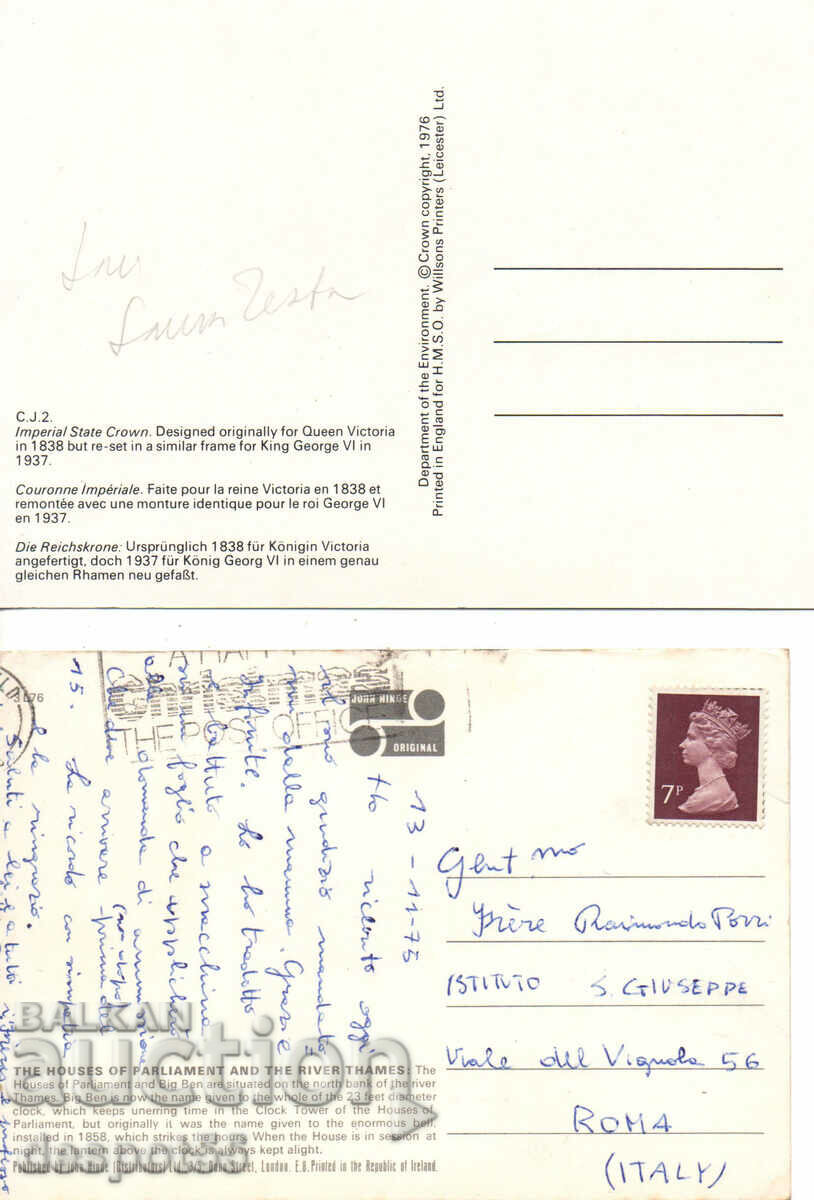 Department of the Environment. © Crown copyright, 1976
Printed in England for H.M.S.O. by Willsons Printers (Leicester) Ltd.
Laura Testa
C.J.2.
Imperial State Crown. Designed originally for Queen Victoria
in 1838 but re-set in a similar frame for King George VI in
1937.
Couronne Impériale. Faite pour la reine Victoria en 1838 et
remontée avec une monture identique pour le roi George VI
en 1937.
Die Reichskrone: Ursprünglich 1838 für Königin Victoria
angefertigt, doch 1937 für König Georg VI in einem genau
gleichen Rhamen neu gefaßt.
THE POST OFFICE
JOHN HINDE
ORIGINAL
7P
13-11-75
Ho ricevuto oggi
il suo giudizio mandato
mi dalla mamma. Grazie
infinite. Lo ho tradotto
e battuto a macchina
su un foglio che applicherò
alla domanda di ammissione
che deve arrivare prima del
(non dopo)
15. La ricordo con simpatia
e la ringrazio.
Saluti a lei e a tutti
Gent mo
Frère Raimondo Porri
ISTITUTO S. GIUSEPPE
Viale del Vignola 56
ROMA
(ITALY)
THE HOUSES OF PARLIAMENT AND THE RIVER THAMES: The
Houses of Parliament and Big Ben are situated on the north bank of the river
Thames. Big Ben is now the name given to the whole of the 23 feet diameter
clock, which keeps unerring time in the Clock Tower of the Houses of
Parliament, but originally it was the name given to the enormous bell,
installed in 1858, which strikes the hours. When the House is in session at
night, the lantern above the clock is always kept alight.
Published by John Hinde (Distributors) Ltd. Street, London. E.8. Printed in the Republic of Ireland.
BALKAN
auction
despot58